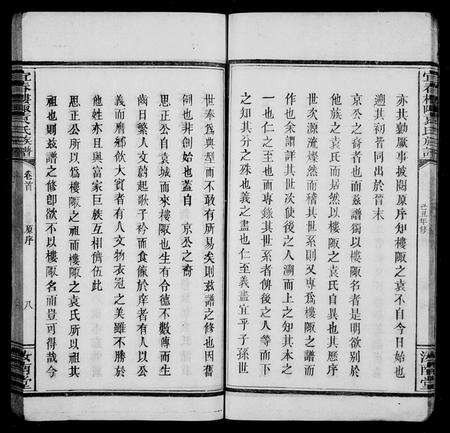 亦其勷厥事披閱原序知樓陬之袁不自今日始也
遡其初皆同出於晉末
京公之裔者也而茲譜獨以樓陬名者是明欲別於
他族之袁氏而居然以樓陬之袁氏自異也其歷序
世次源流燦然而稽其世系則又專為樓陬之譜而
作也余謂詳其世次使後之人溯而上之知其未之
一也仁之至也而專錄其世系者俾後之人等而下
之知其分之殊也義之盡也仁至義盡宜乎子孫世
世奉為典型而不敢有所易矣則茲譜之修也因舊
例也非創始也蓋自 京公之裔
思正公自袁城而來樓陬也生有合德不數傳而生
齒日繁人文蔚起歌子衿而食餼於庠者有人以公
義而膺鄉飲大賓者有人文物衣冠之美雖不勝於
他姓亦且與富家巨族互相儕伍此
思正公所以為樓陬之祖而樓陬之袁氏所以祖其
祖也則茲譜之修即欲不以樓陬名而豈可得哉今
宜春樓陬袁氏族譜
卷首
原序
八
汝南堂